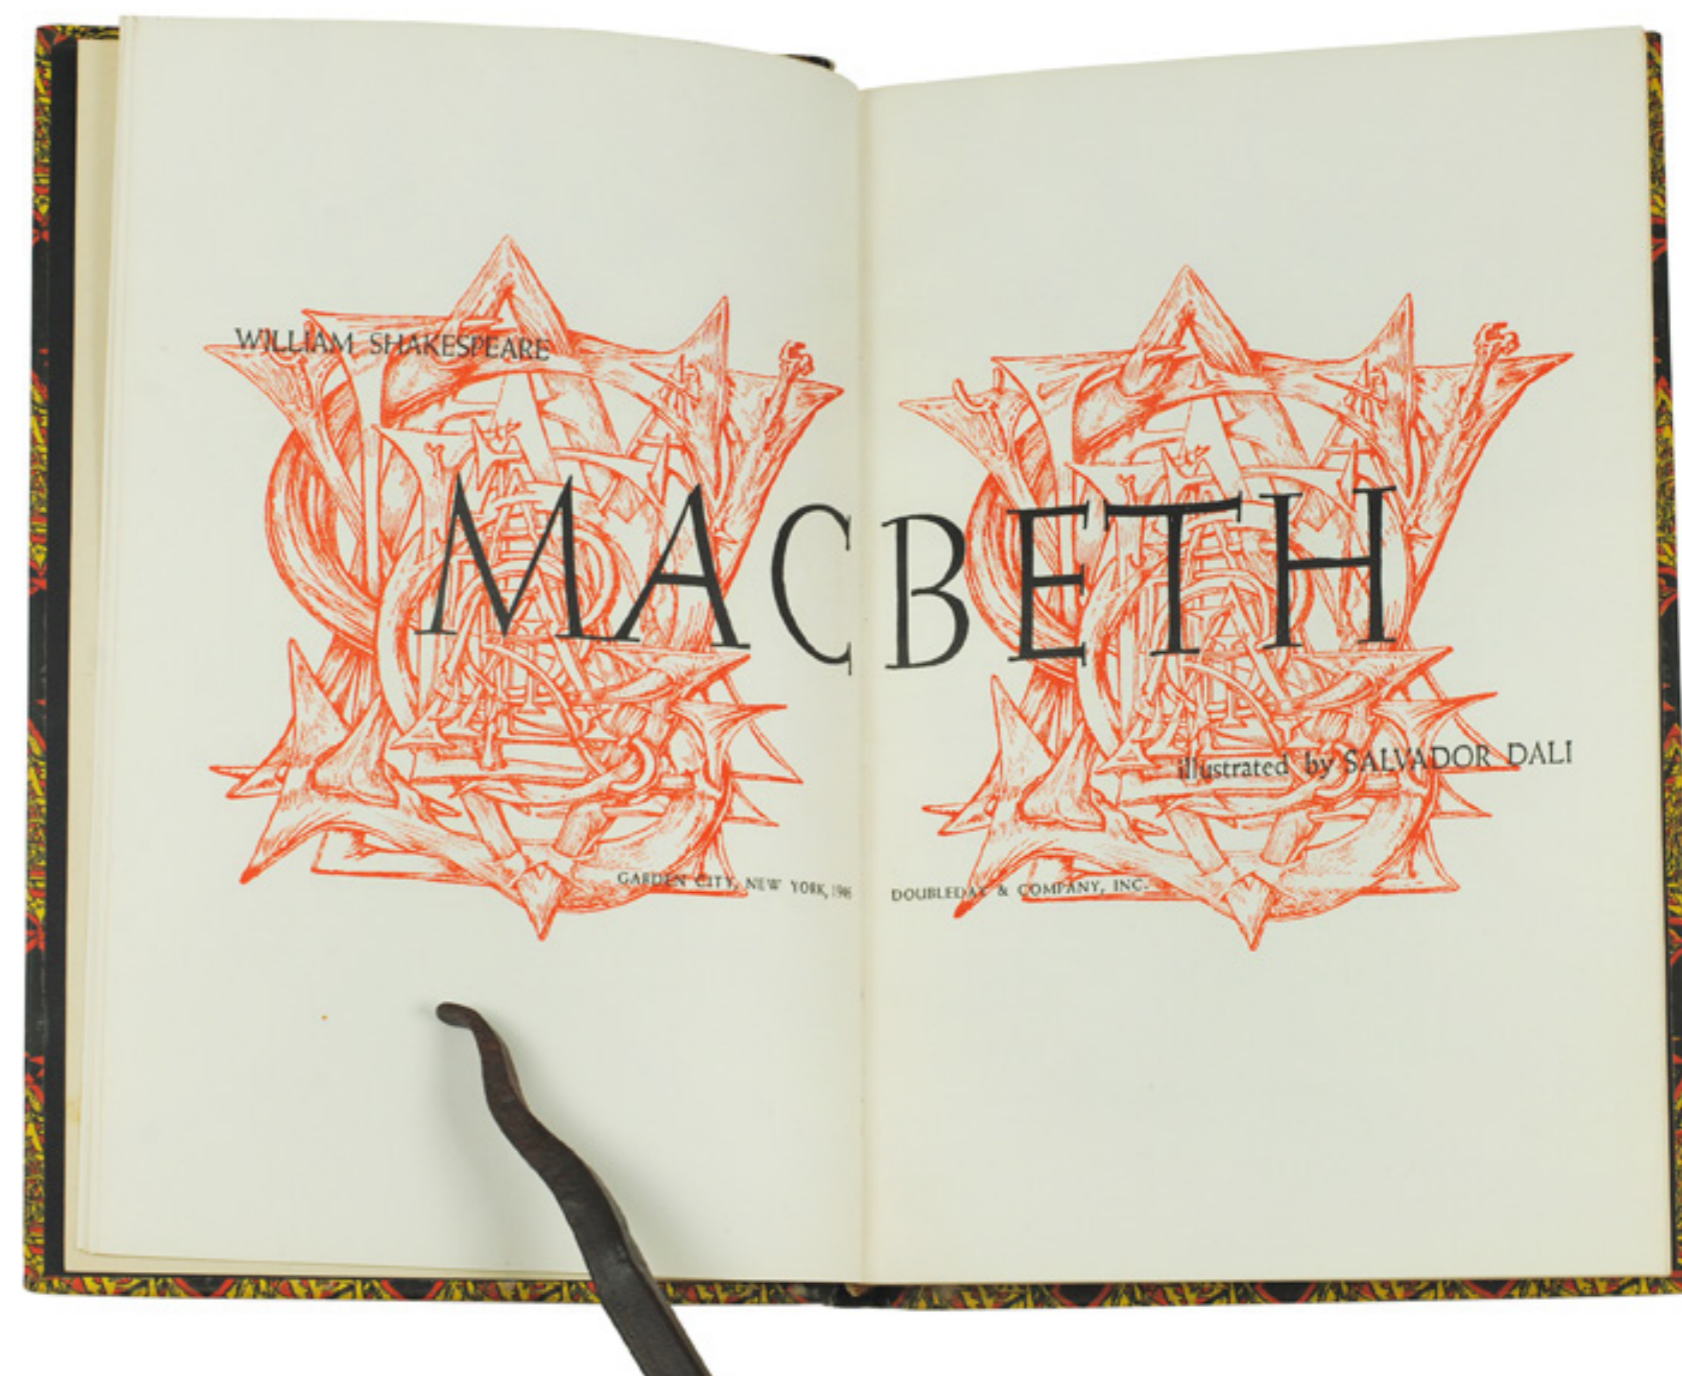 WILLIAM SHAKESPEARE
MACBETH
illustrated by SALVADOR DALI
GARDEN CITY, NEW YORK, 1946 DOUBLEDAY & COMPANY, INC.